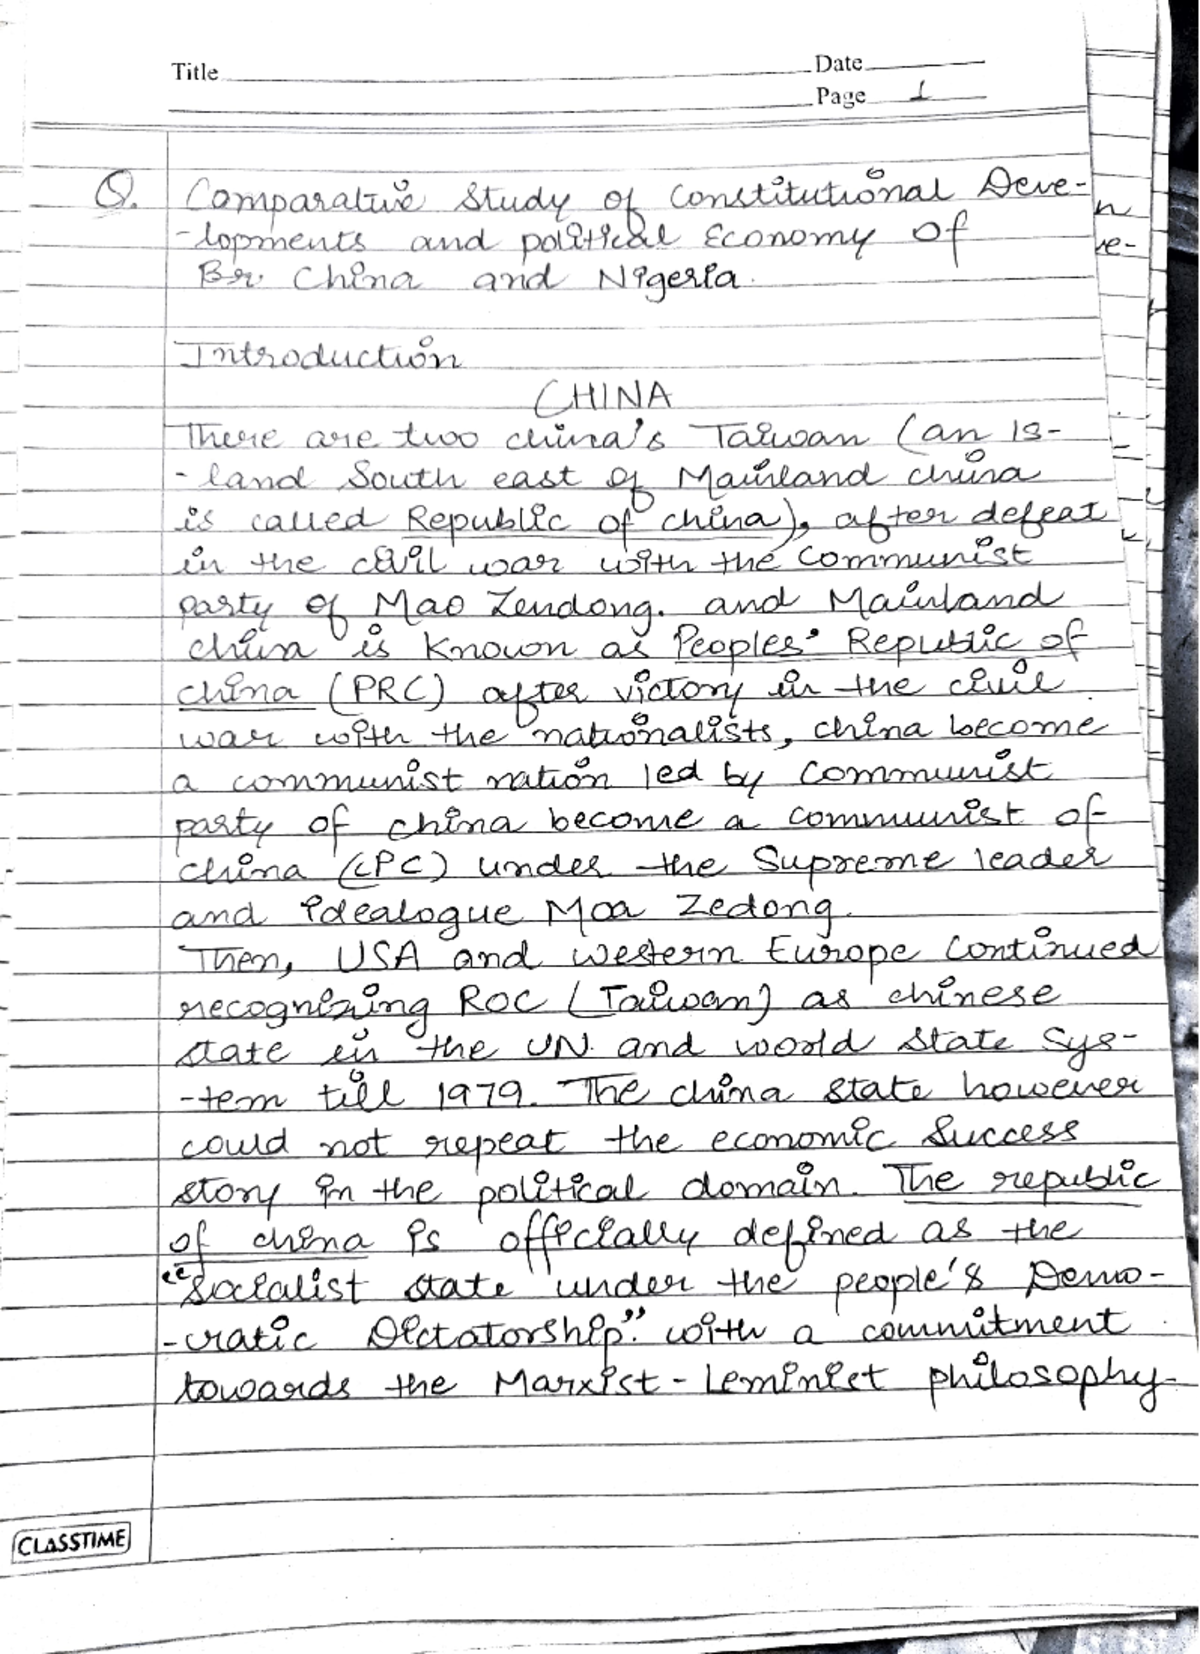 Title
Date
Page 1
Q. Comparative Study of Constitutional Deve-
-lopments and political Economy of
Br. China and Nigeria.
n
ve-
Introduction
CHINA
There are two china's Taiwan (an Is-
-land South east of Mainland china
is called Republic of china), after defeat
in the civil war with the Communist
party of Mao Zendong. and Mainland
china is known as Peoples' Republic of
china (PRC) after victory in the civil
war with the nationalists, china become
a communist nation led by Communist
party of china become a communist of
china (CPC) under the Supreme leader
and idealogue Moa Zedong.
Then, USA and western Europe Continued
recognizing ROC (Taiwan) as chinese
state in the UN. and world State Sys-
-tem till 1979. The china state however
could not repeat the economic Success
story in the political domain. The republic
of china is officially defined as the
"Socialist state under the people's Demo-
-cratic Dictatorship". with a commitment
towards the Marxist-Leminist philosophy
CLASSTIME